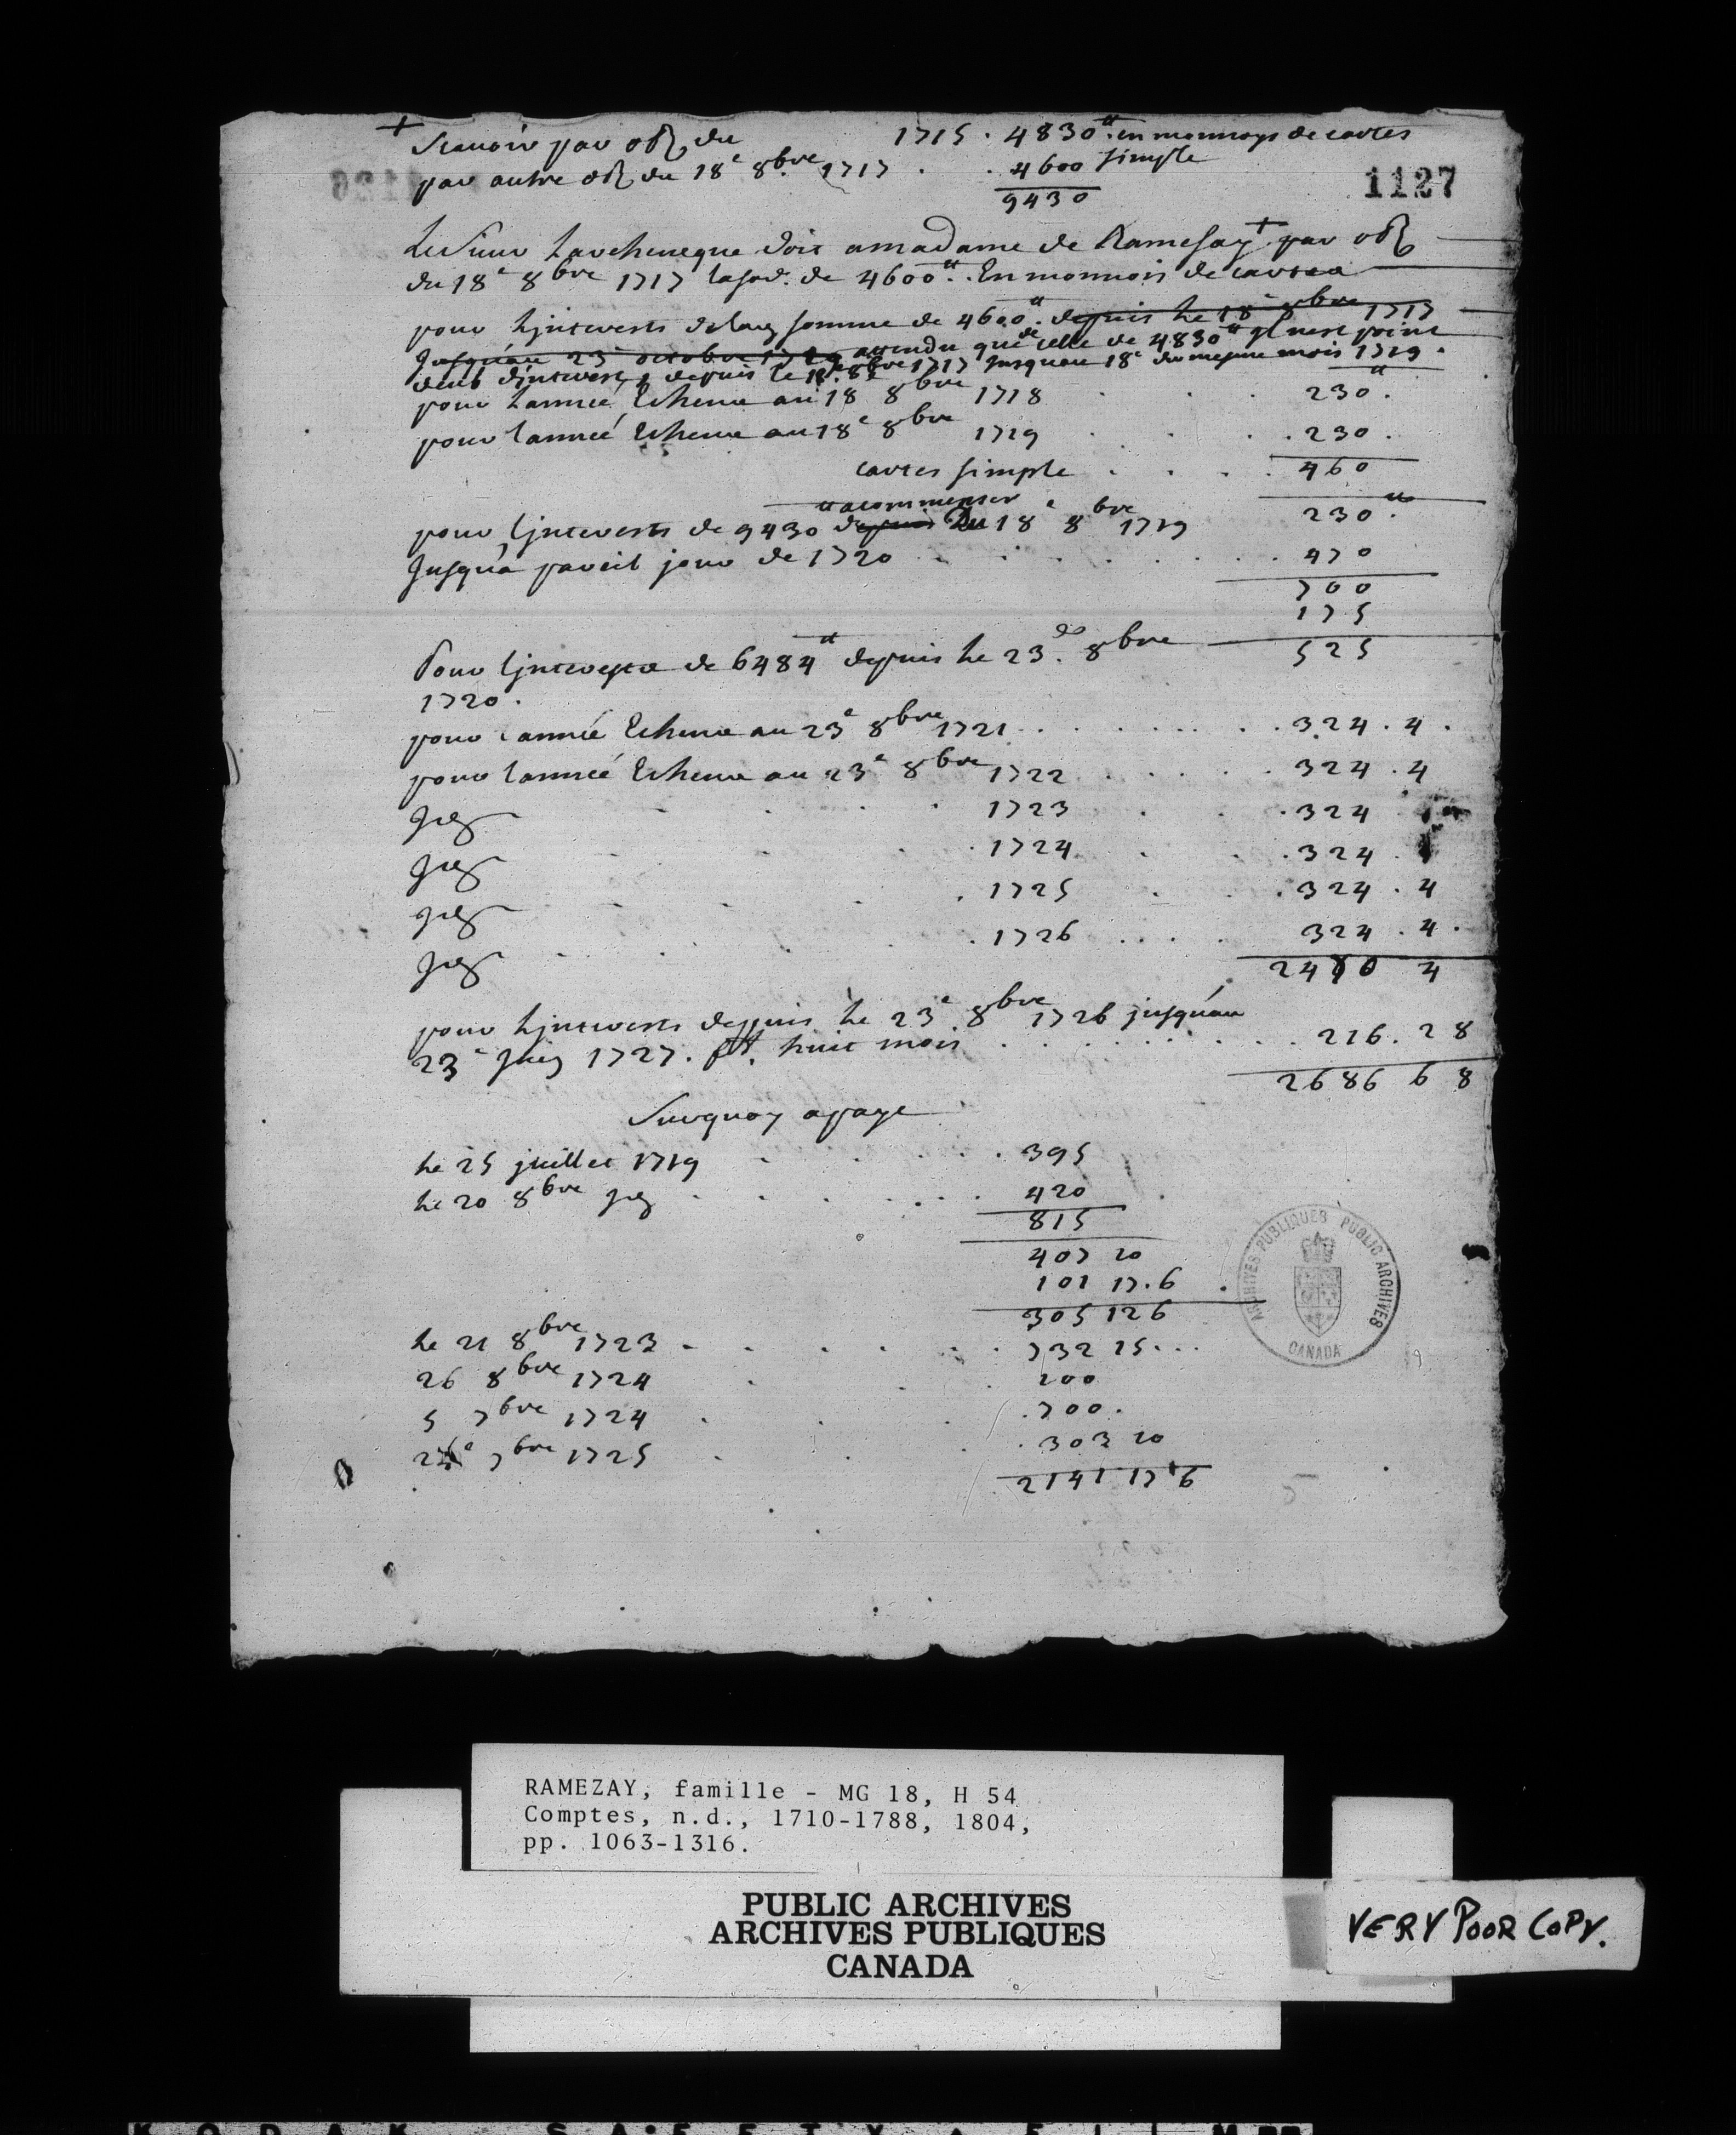 + Scavoir par obl du 1715 . 4830ᵗᵗ en monnoye de cartes
par autre obl du 18ᵉ 8bre 1717 . . 4600 simple
9430
1127
Le Sieur Larcheveque doit a madame de Ramesay + par obl
du 18ᵉ 8bre 1717 la so. de 4600ᵗᵗ. En monnois de cartes
pour Linterests de la somme de 4600ᵗᵗ. depuis Le 18ᵉ 8bre 1717
Jusquau 23 octobre 1720 attendu que de celle de 4830ᵗᵗ nest point
deub dinterest depuis le 18ᵉ 8bre 1717 Jusquau 18ᵉ du mesme mois 1719.
pour Lannée Echeue au 18 8bre 1718 . . . 230ᵗᵗ.
pour lanneé Echeue au 18ᵉ 8bre 1719 . . . 230.
cartes simple . . . . 460
a commenser
pour Linterests de 9430ᵗᵗ depuis Du 18ᵉ 8bre 1719 230ᵗᵗ.
Jusqua pareil jour de 1720 . . . . . . 470
700
175
Pour Linterests de 6484ᵗᵗ depuis Le 23. 8bre 525
1720.
pour lannée Echeue au 23ᵉ 8bre 1721 . . . . . 324 . 4 .
pour lanneé Echeue au 23ᵉ 8bre 1722 . . . . . 324 . 4
Id . . . . 1723 . . . 324
Id . . . . 1724 . . . 324 .
Id . . . . 1725 . . . 324 . 4
Id . . . . 1726 . . . 324 . 4 .
2470 4
pour Linterests depuis Le 23ᵉ 8bre 1726 jusquau
23ᵉ Juin 1727. ft. huit mois . . . . . . 216. 2 8
2686 6 8
Surquoy a paye
Le 25 juillet 1719 . . . . . 395
Le 20 8bre Id . . . . . . 420
815
407 10
101 17.6
305 12 6
Le 21 8bre 1723 . . . . . . 732 15 . . .
26 8bre 1724 . . . 200
5 7bre 1724 . . . 700.
7bre 1725 . . . 303 10
2141 17 6
ARCHIVES PUBLIQUES PUBLIC ARCHIVES
CANADA
RAMEZAY, famille - MG 18, H 54
Comptes, n.d., 1710-1788, 1804,
pp. 1063-1316.
PUBLIC ARCHIVES
ARCHIVES PUBLIQUES
CANADA
VERY POOR COPY.